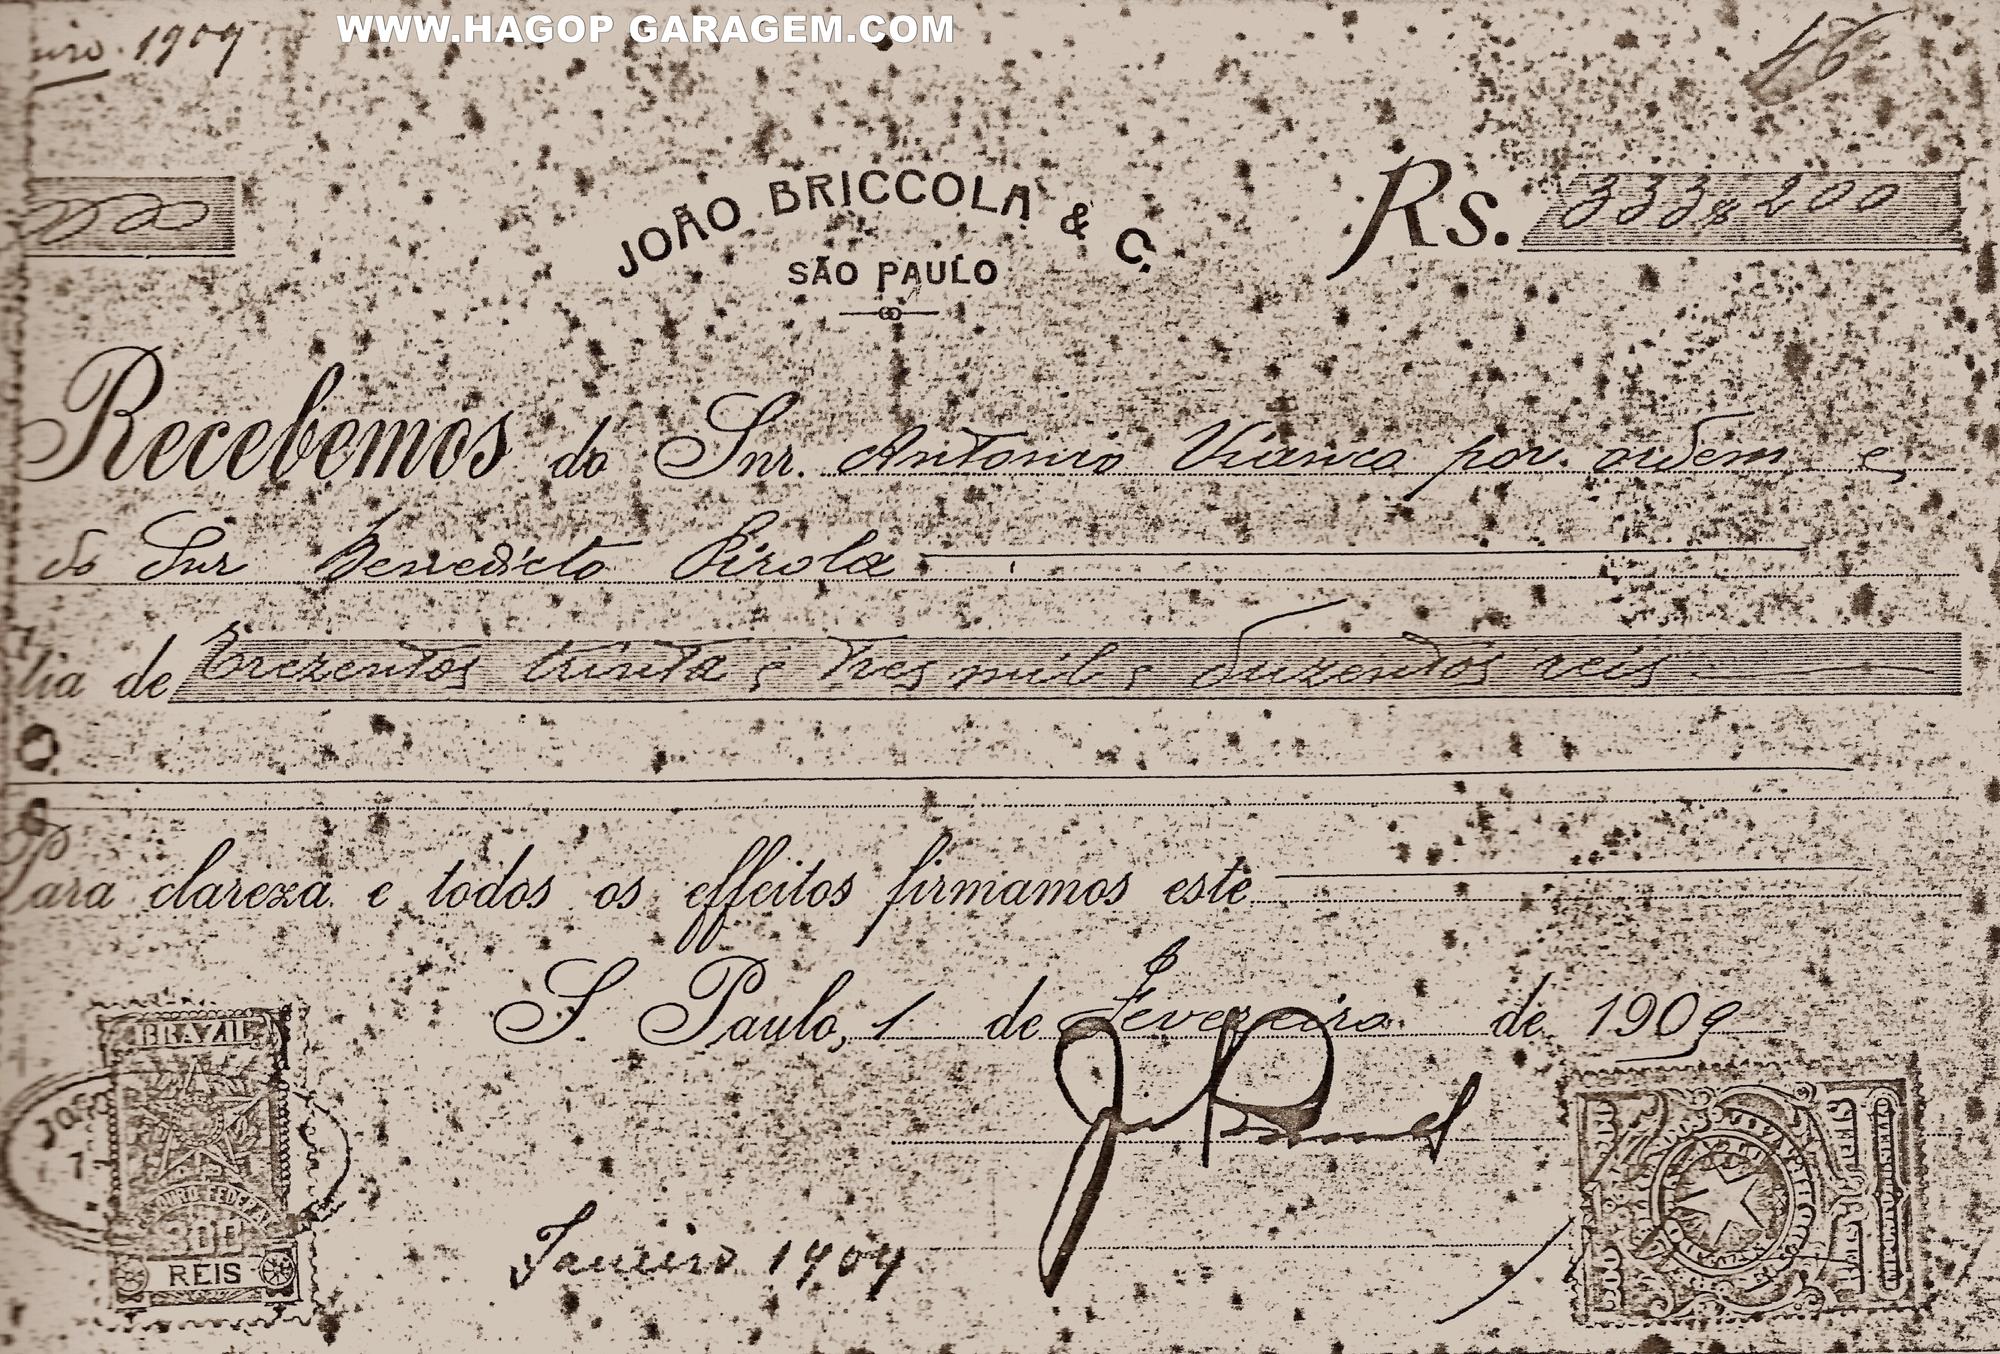 WWW.HAGOP GARAGEM.COM
eiro 1909
46
JOÃO BRICCOLA & C.
SÃO PAULO
Rs. 333$200
Recebemos do Snr. Antonio Vianco por ordem e
do Snr Benedicto Pirola
tia de Trezentos trinta e Tres mil e duzentos reis
Para clareza e todos os effeitos firmamos este
S. Paulo, 1 de Fevereiro de 1909
BRAZIL
300
REIS
Janeiro 1909